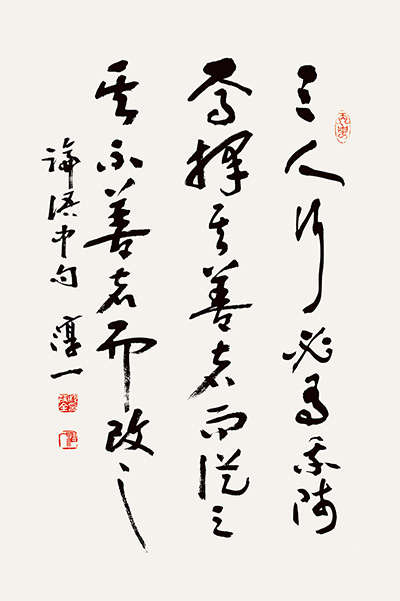 三人行必有我師
焉擇其善者而從之
其不善者而改之
論語中句 淳一